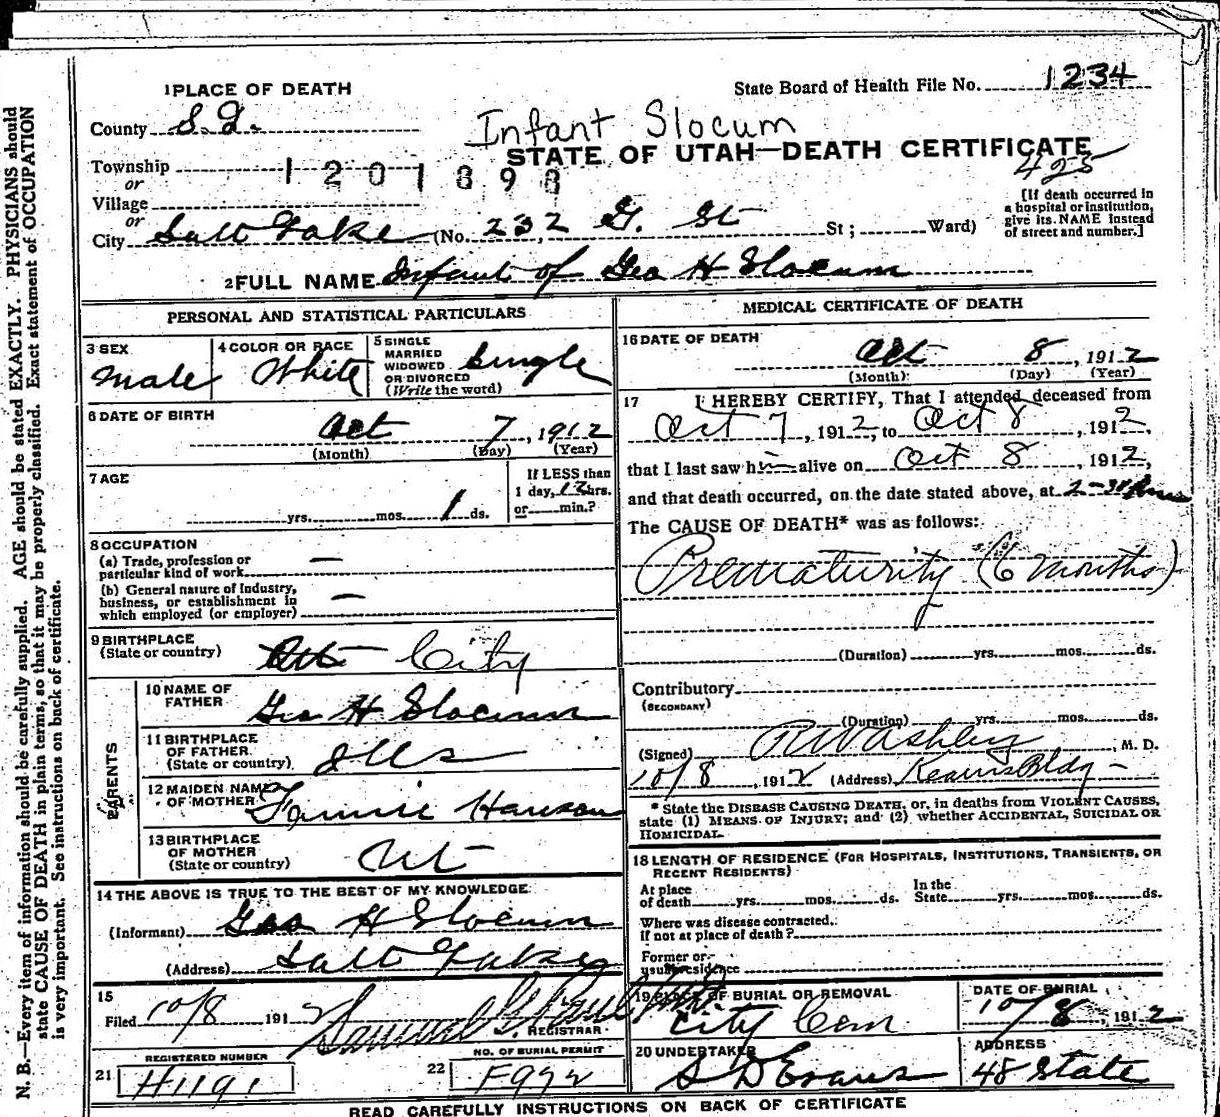 1 PLACE OF DEATH
State Board of Health File No. 1234
County S. L.
Infant Slocum
STATE OF UTAH—DEATH CERTIFICATE
Township
or
1201898
425
Village
or
[If death occurred in
a hospital or institution,
give its NAME instead
of street and number.]
City Salt Lake (No. 232 G. St St; Ward)
2 FULL NAME Infant of Geo H Slocum
PERSONAL AND STATISTICAL PARTICULARS
3 SEX
Male
4 COLOR OR RACE
White
5 SINGLE
MARRIED
WIDOWED
OR DIVORCED
(Write the word)
Single
6 DATE OF BIRTH
Oct 7, 1912
(Month) (Day) (Year)
7 AGE
yrs. mos. 1 ds.
If LESS than
1 day, 12 hrs.
or min.?
8 OCCUPATION
(a) Trade, profession or
particular kind of work —
(b) General nature of industry,
business, or establishment in
which employed (or employer) —
9 BIRTHPLACE
(State or country) City
PARENTS
10 NAME OF
FATHER Geo H Slocum
11 BIRTHPLACE
OF FATHER
(State or country) Ills
12 MAIDEN NAME
OF MOTHER Fannie Hanson
13 BIRTHPLACE
OF MOTHER
(State or country) Ut
14 THE ABOVE IS TRUE TO THE BEST OF MY KNOWLEDGE
(Informant) Geo H Slocum
(Address) Salt Lake
15
Filed 10/8 1912
REGISTRAR
REGISTERED NUMBER
21 H1191
NO. OF BURIAL PERMIT
22 F972
MEDICAL CERTIFICATE OF DEATH
16 DATE OF DEATH
Oct 8, 1912
(Month) (Day) (Year)
17 I HEREBY CERTIFY, That I attended deceased from
Oct 7, 1912, to Oct 8, 1912,
that I last saw him alive on Oct 8, 1912,
and that death occurred, on the date stated above, at 2-30 Pm
The CAUSE OF DEATH* was as follows:
Prematurity (6 months)
(Duration) yrs. mos. ds.
Contributory
(SECONDARY)
(Duration) yrs. mos. ds.
(Signed) RW Ashley, M. D.
10/8, 1912 (Address) Kearns Bldg -
* State the DISEASE CAUSING DEATH, or, in deaths from VIOLENT CAUSES,
state (1) MEANS OF INJURY; and (2) whether ACCIDENTAL, SUICIDAL OR
HOMICIDAL.
18 LENGTH OF RESIDENCE (FOR HOSPITALS, INSTITUTIONS, TRANSIENTS, OR
RECENT RESIDENTS)
At place
of death yrs. mos. ds.
In the
State yrs. mos. ds.
Where was disease contracted.
if not at place of death?
Former or
usual residence
19 PLACE OF BURIAL OR REMOVAL
City Cem
DATE OF BURIAL
10/8, 1912
20 UNDERTAKER
S D Evans
ADDRESS
48 State
READ CAREFULLY INSTRUCTIONS ON BACK OF CERTIFICATE
N. B.—Every item of information should be carefully supplied. AGE should be stated EXACTLY. PHYSICIANS should
state CAUSE OF DEATH in plain terms, so that it may be properly classified. Exact statement of OCCUPATION
is very important. See instructions on back of certificate.